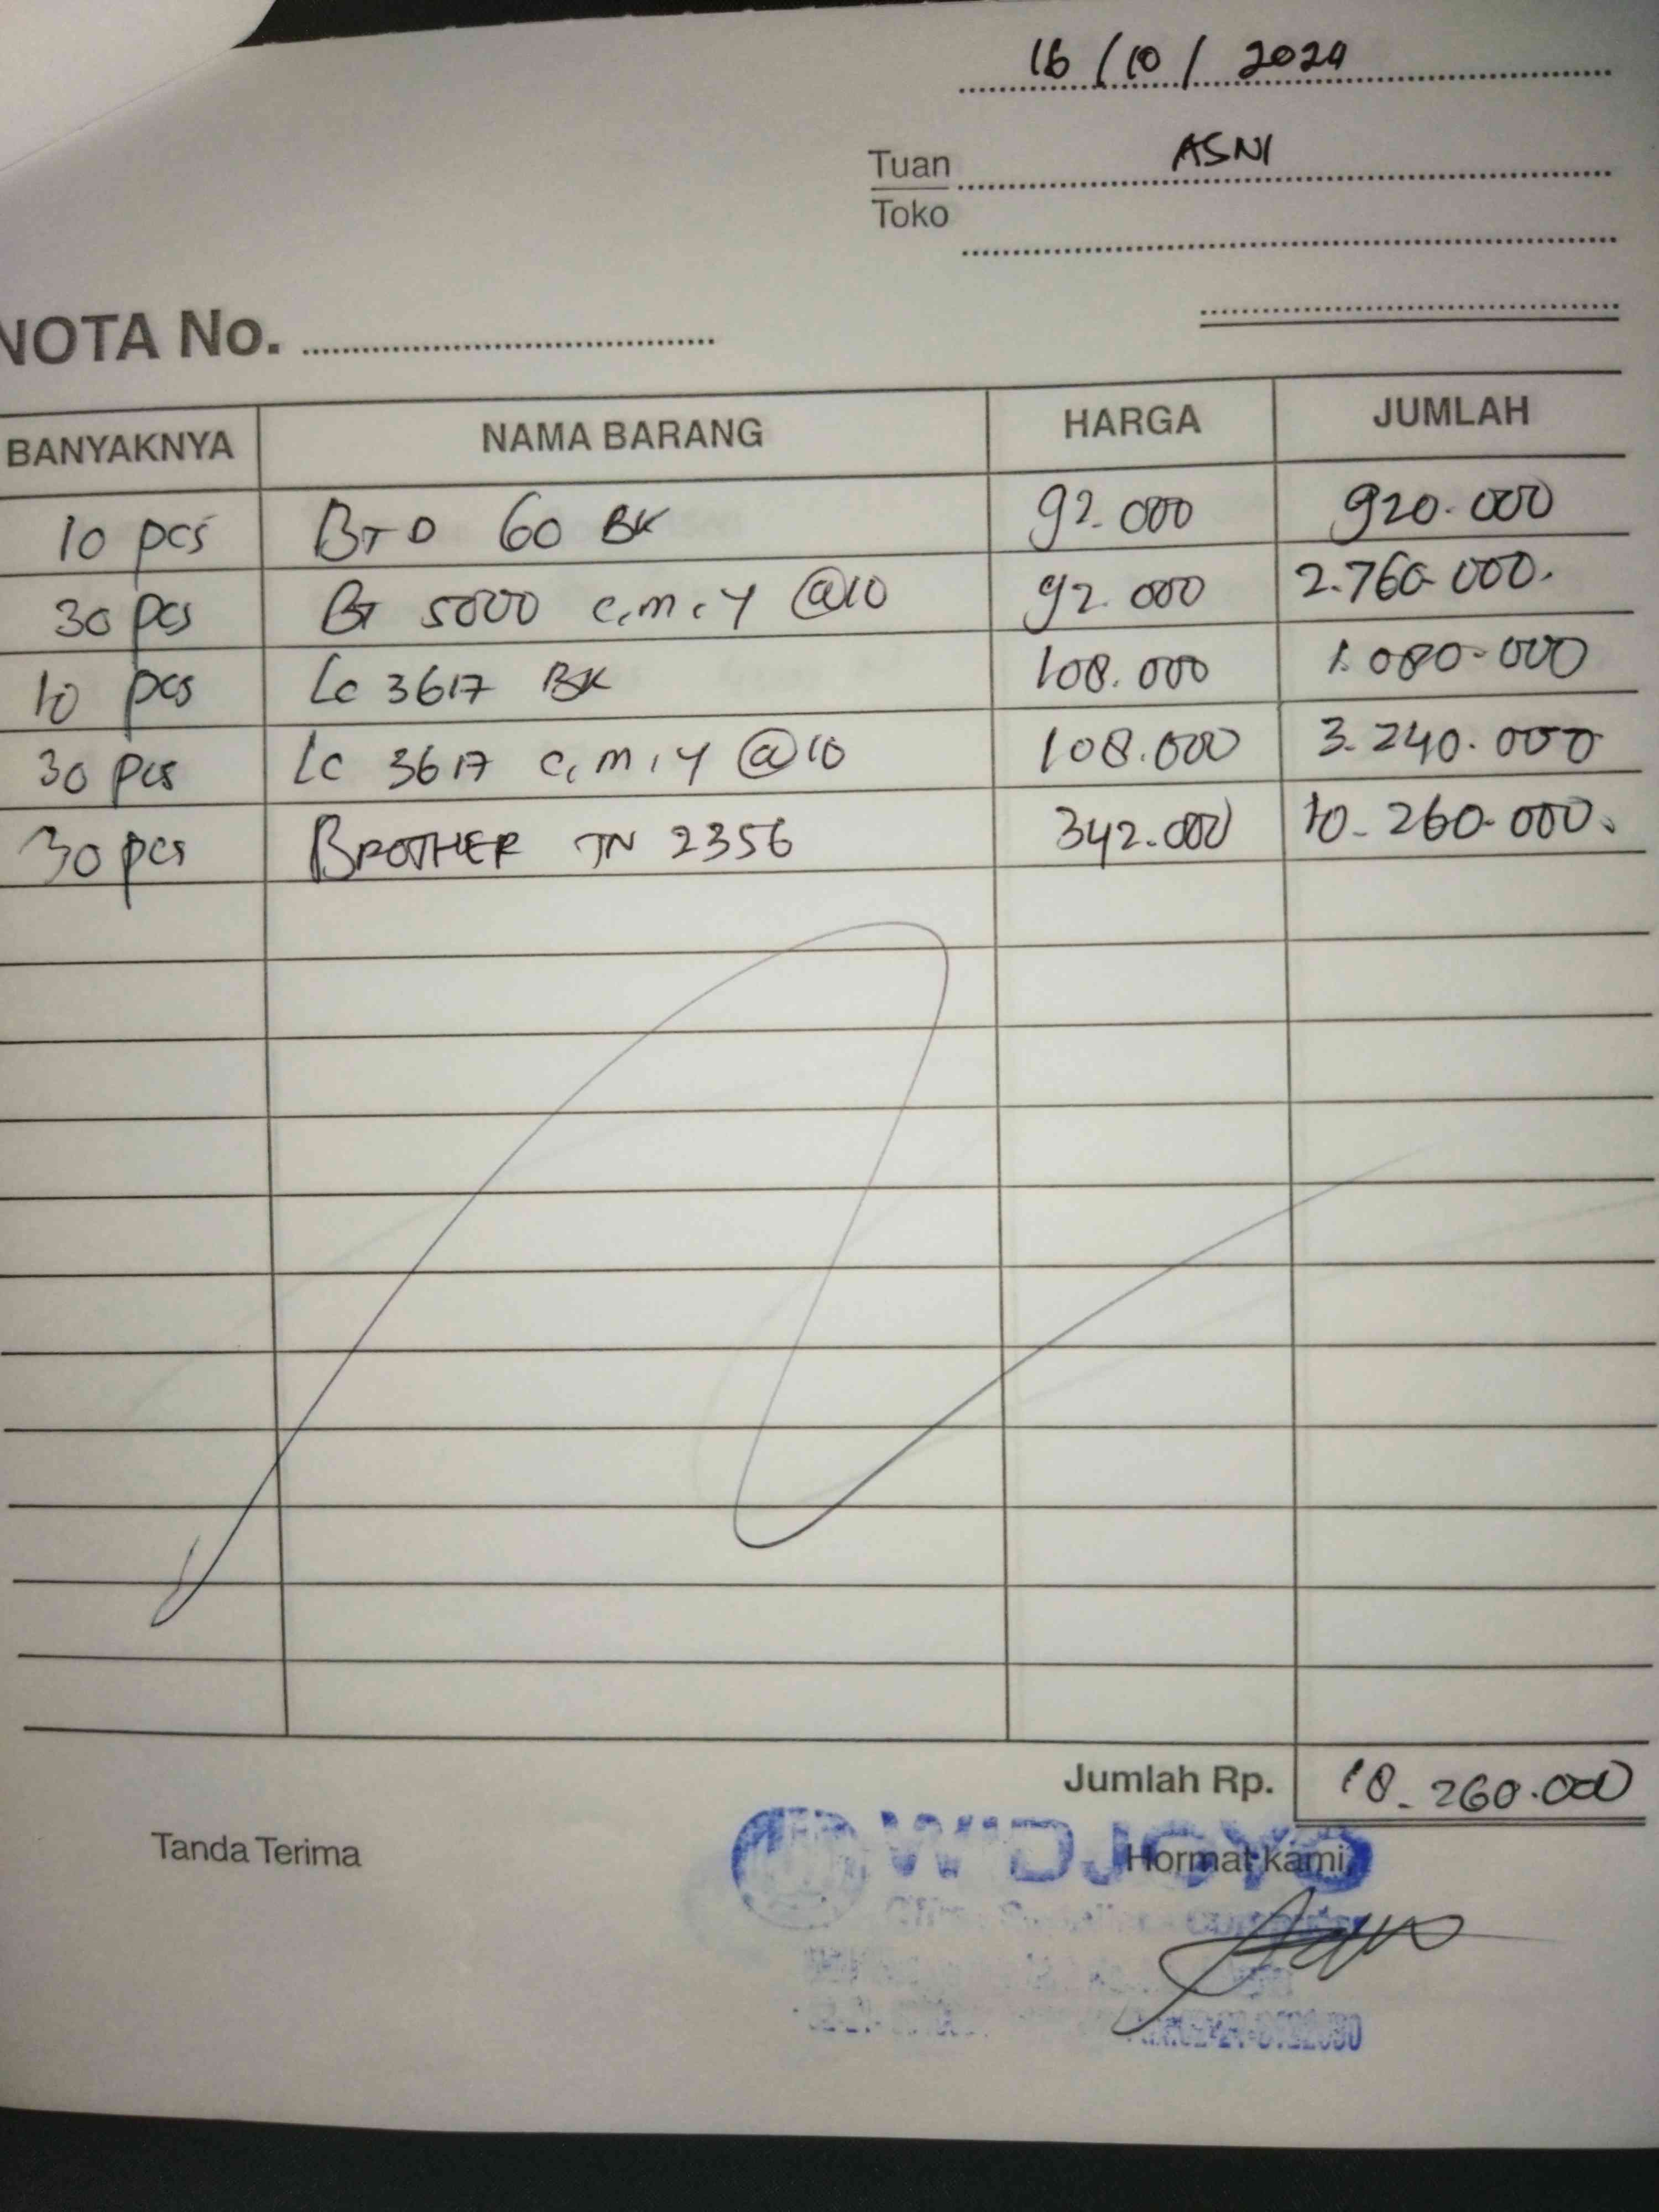 16/10/2024
Tuan ASNI
Toko
NOTA No.
BANYAKNYA NAMA BARANG HARGA JUMLAH
10 pcs BTD 60 BK 92.000 920.000
30 pcs BT 5000 c,m,y @10 92.000 2.760.000.
10 pcs Lc 3617 BK 108.000 1.080.000
30 pcs Lc 3617 c,m,y @10 108.000 3.240.000
30 pcs BROTHER TN 2356 342.000 10.260.000.
Jumlah Rp. 18.260.000
Tanda Terima Hormat kami,
WIDJOYO